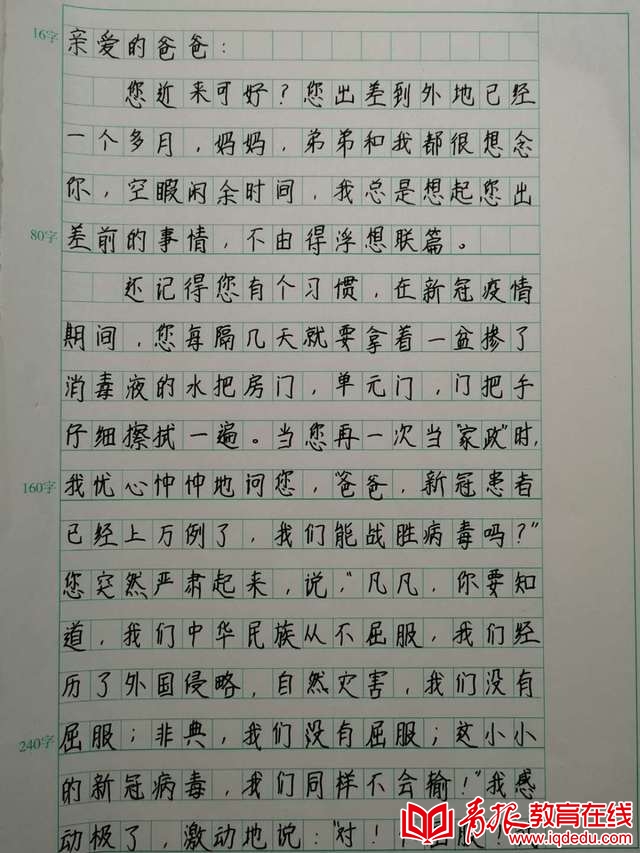 16字
亲爱的爸爸：
您近来可好？您出差到外地已经
一个多月，妈妈，弟弟和我都很想念
你，空暇闲余时间，我总是想起您出
80字
差前的事情，不由得浮想联篇。
还记得您有个习惯，在新冠疫情
期间，您每隔几天就要拿着一盆掺了
消毒液的水把房门，单元门，门把手
仔细擦拭一遍。当您再一次当“家政”时，
160字
我忧心忡忡地问您，“爸爸，新冠患者
已经上万例了，我们能战胜病毒吗？”
您突然严肃起来，说，“凡凡，你要知
道，我们中华民族从不屈服，我们经
历了外国侵略，自然灾害，我们没有
240字
屈服；非典，我们没有屈服；这小小
的新冠病毒，我们同样不会输！”我感
动极了，激动地说：“对！
青报教育在线
www.iqdedu.com